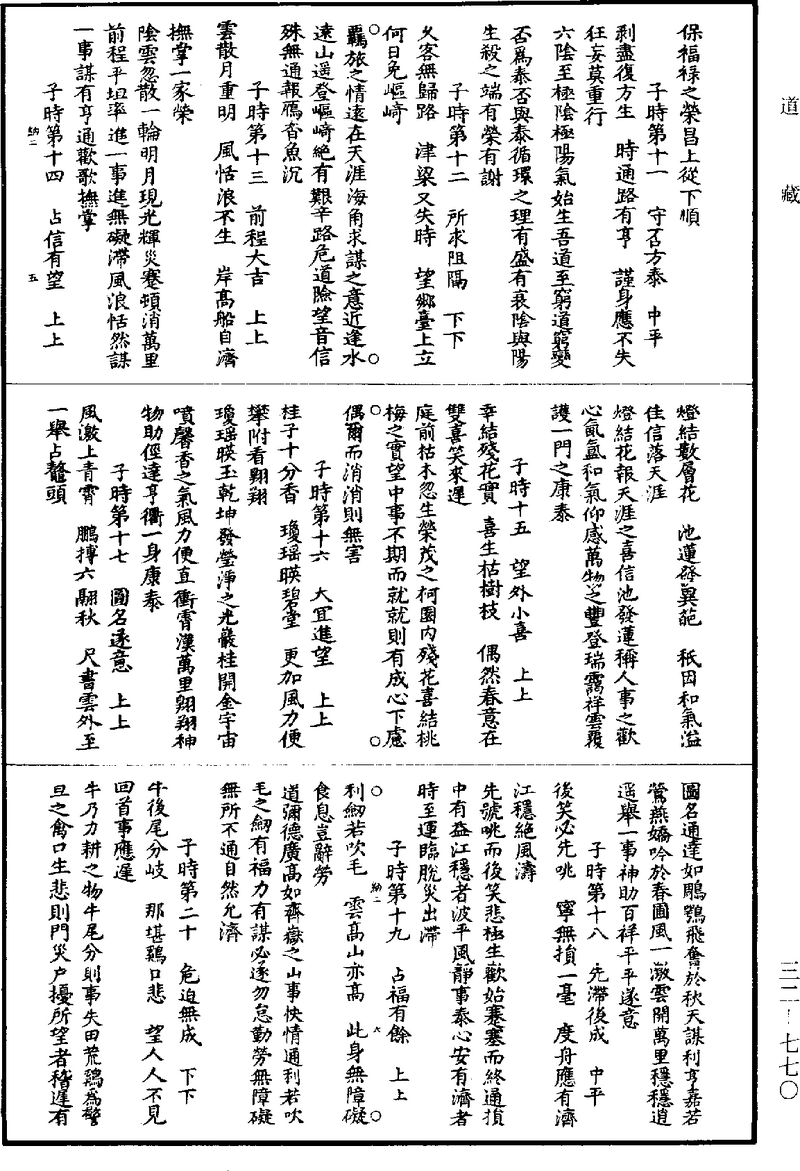 道藏
保福祿之榮昌上從下順
子時第十一　守否方泰　中平
剥盡復方生　時通路有亨　謹身應不失
狂妄莫重行
六陰至極陰極陽氣始生吾道至窮道窮變
否爲泰否與泰循環之理有盛有衰陰與陽
生殺之端有榮有謝
子時第十二　所求阻隔　下下
久客無歸路　津梁又失時　望鄉臺上立
何日免嶇崎
羈旅之情遠在天涯海角求謀之意近逢水
遠山遥登嶇崎絕有艱辛路危道險望音信
殊無通報鴈杳魚沉
子時第十三　前程大吉　上上
雲散月重明　風恬浪不生　岸高船自濟
撫掌一家榮
陰雲忽散一輪明月現光輝災蹇頓消萬里
前程平坦率進一事進無礙滯風浪恬然謀
一事謀有亨通歡歌撫掌
子時第十四　占信有望　上上
納二　五
燈結數層花　池蓮發異葩　秖因和氣溢
佳信落天涯
燈結花報天涯之喜信池發蓮稱人事之歡
心氤氳和氣仰感萬物之豐登瑞靄祥雲覆
護一門之康泰
子時十五　望外小喜　上上
幸結殘花實　喜生枯樹枝　偶然春意在
雙喜笑來遲
庭前枯木忽生榮茂之柯園内殘花喜結桃
梅之實望中事不期而就就則有成心下慮
偶爾而消消則無害
子時第十六　大宜進望　上上
桂子十分香　瓊瑶暎碧堂　更加風力便
攀附看翱翔
瓊瑶暎玉乾坤發瑩淨之光巖桂開金宇宙
噴馨香之氣風力便直衝霄漢萬里翱翔神
物助徑達亨衢一身康泰
子時第十七　圖名遂意　上上
風激上青霄　鵬摶六翮秋　尺書雲外至
一舉占鼇頭
圖名通達如鵬鶚飛奮於秋天謀利亨嘉若
鶯燕嬌吟於春圃風一激雲開萬里穩穩逍
遥舉一事神助百祥平平遂意
子時第十八　先滯後成　中平
後笑必先咷　寧無損一毫　度舟應有濟
江穩絕風濤
先號咷而後笑悲極生歡始蹇蹇而終通損
中有益江穩者波平風靜事泰心安有濟者
時至運臨脫災出滯
子時第十九　占福有餘　上上
納二　六
利劒若吹毛　雲高山亦高　此身無障礙
食息豈辭勞
道彌德廣高如齊嶽之山事快情通利若吹
毛之劒有福力有謀必遂勿怠勤勞無障礙
無所不通自然允濟
子時第二十　危迫無成　下下
牛後尾分岐　那堪鷄口悲　望人人不見
回首事應遲
牛乃力耕之物牛尾分則事失田荒鷄爲警
旦之禽口生悲則門災户擾所望者稽遲有
三二—七七〇